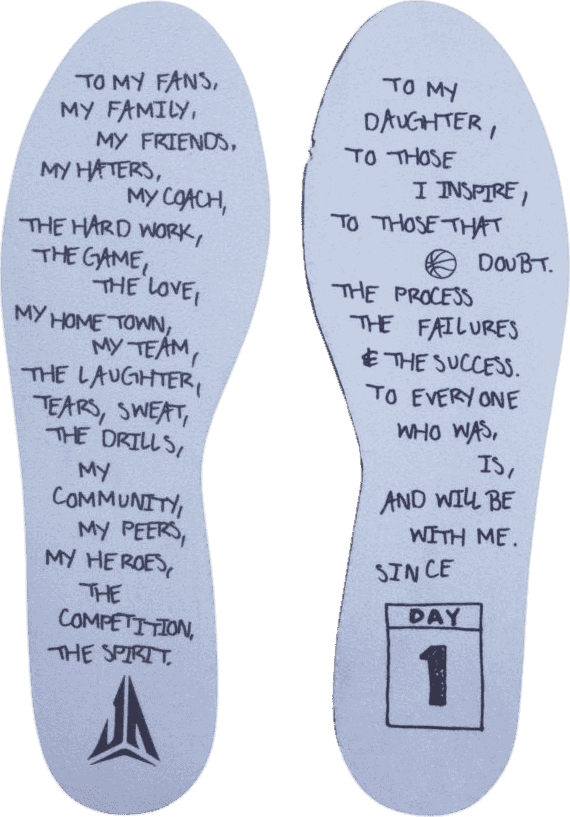 TO MY FANS,
MY FAMILY,
MY FRIENDS,
MY HATERS,
MY COACH,
THE HARD WORK,
THE GAME,
THE LOVE,
MY HOMETOWN,
MY TEAM,
THE LAUGHTER,
TEARS, SWEAT,
THE DRILLS,
MY
COMMUNITY,
MY PEERS,
MY HEROES,
THE
COMPETITION,
THE SPIRIT.
JA
TO MY
DAUGHTER,
TO THOSE
I INSPIRE,
TO THOSE THAT
DOUBT.
THE PROCESS
THE FAILURES
& THE SUCCESS.
TO EVERYONE
WHO WAS,
IS,
AND WILL BE
WITH ME.
SINCE
DAY
1